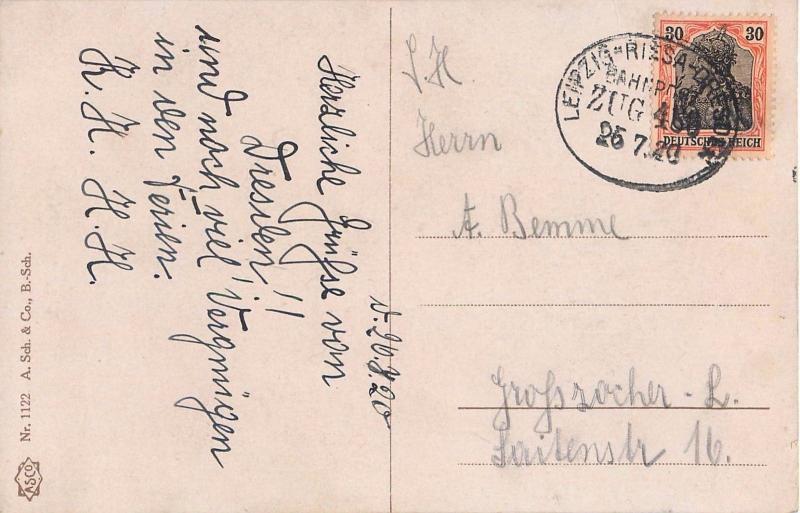 Herzliche Grüße von
Dresden!!
und noch viel Vergnügen
in den Ferien.
K. H. H. H.
Nr. 1122 A. Sch. & Co., B.-Sch.
ASCO
30 30
DEUTSCHES REICH
LEIPZIG*RIESA-DRESDEN
BAHNPOST
ZUG
25 7.20
S. H.
Herrn
A. Bemme
Großzocher-L.
Saitenstr 16.